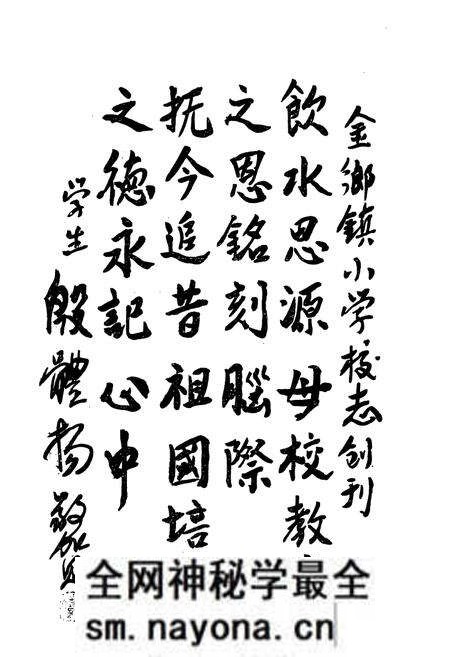 金鄉鎮小学校志创刊
飲水思源母校教
之恩銘刻腦際
抚今追昔祖國培
之德永記心中
学生殷體扬敬賀
全网神秘学最全
sm.nayona.cn